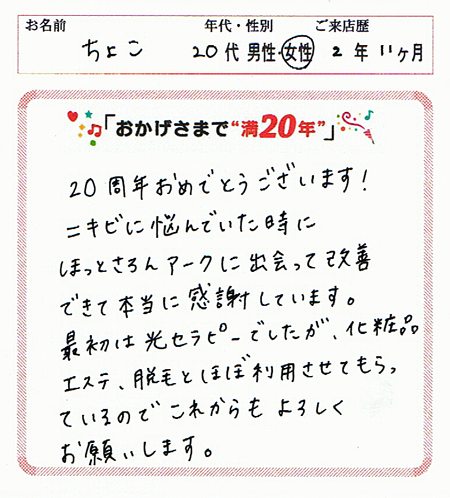 お名前 年代・性別 ご来店歴
ちょこ 20代 男性・女性 2年11ヶ月
「おかげさまで“満20年”」
20周年おめでとうございます!
ニキビに悩んでいた時に
ほっとさろんアークに出会って改善
できて本当に感謝しています。
最初は光セラピーでしたが、化粧品
エステ、脱毛とほぼ利用させてもらっ
ているのでこれからもよろしく
お願いします。